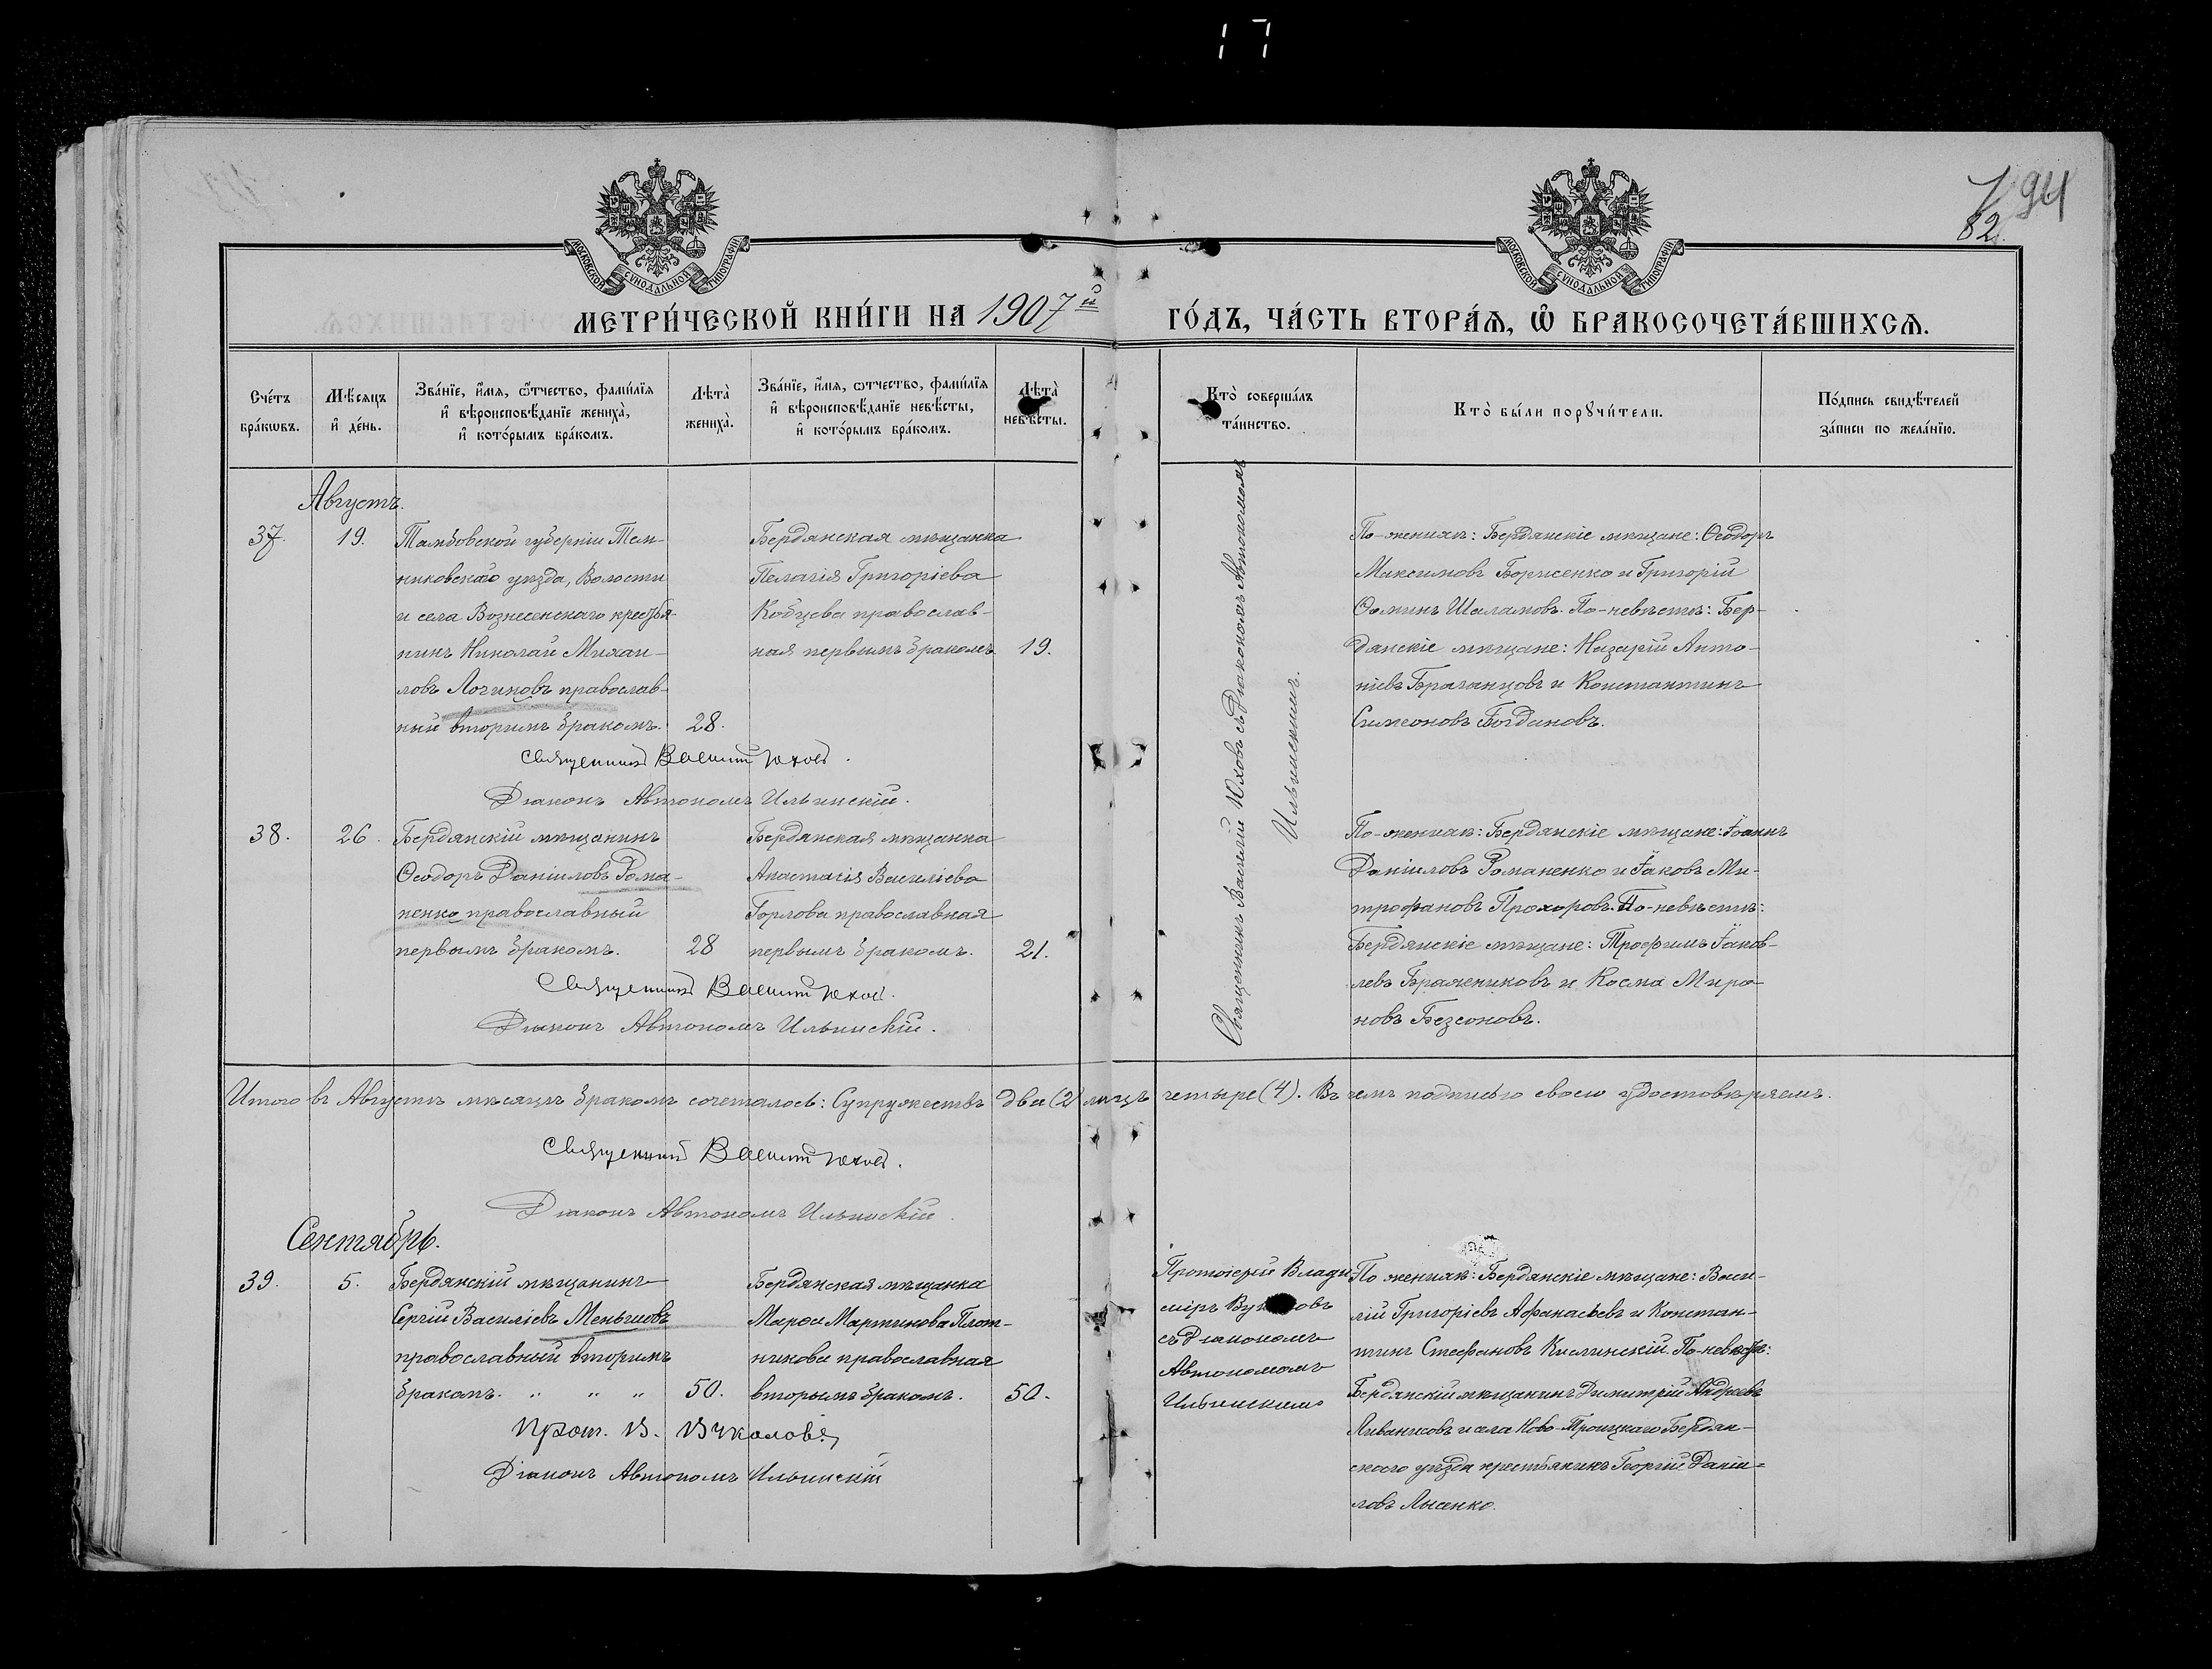 17
94
82.
МОСКОВСКОЙ СѴНОДАЛЬНОЙ ТИПОГРАФІИ
МОСКОВСКОЙ СѴНОДАЛЬНОЙ ТИПОГРАФІИ
МЕТРИ́ЧЕСКОЙ КНИ́ГИ НА 1907й ГО́ДЪ, ЧА́СТЬ ВТОРА́Ѧ, Ѽ БРАКОСОЧЕТА́ВШИХСѦ.
Сче́тъ бра́кѡвъ.
Мѣ́сѧцъ и҆ де́нь.
Зва́нїе, и҆́мѧ, ѻ҆́тчество, фами́лїѧ и҆ вѣроисповѣ́данїе жениха̀, и҆ кото́рымъ бра́комъ.
Лѣта̀ жениха̀.
Зва́нїе, и҆́мѧ, ѻ҆тчество, фами́лїѧ и҆ вѣроисповѣ́данїе невѣ́сты, и҆ кото́рымъ бра́комъ.
Лѣта̀ невѣ́сты.
Кто̀ соверша́лъ та́инство.
Кто̀ бы́ли порꙋчи́тели.
По́дпись свидѣ́телей за́писи по жела́нїю.
Августъ.
37.
19.
Тамбовской губерніи Тем-
никовскаго уѣзда, Волости
и села Вознесенскаго кресть я-
нинъ Николай Михаи-
ловъ Логиновъ православ-
ный вторымъ бракомъ.
28.
Бердянская мѣщанка
Пелагія Григоріева
Кобцева православ-
ная первымъ бракомъ
19.
Священникъ Василій Юховъ съ Діакономъ Автономомъ
Ильинскимъ.
По-женихѣ: Бердянскіе мѣщане: Ѳеодоръ
Максимовъ Борисенко и Григорій
Ѳоминъ Шаламовъ. По-невѣстѣ: Бер-
дянскіе мѣщане: Назарій Анто-
ніевъ Браганцовъ и Константинъ
Симеоновъ Богдановъ.
Священникъ Василій Юховъ.
Діаконъ Автономъ Ильинскій.
38.
26.
Бердянскій мѣщанинъ
Ѳеодоръ Даніиловъ Рома-
ненко православный
первымъ бракомъ.
28
Бердянская мѣщанка
Анастасія Василіева
Горлова православная
первымъ бракомъ.
21.
По-женихѣ: Бердянскіе мѣщане: Іоаннъ
Даніиловъ Романенко и Іаковъ Ми-
трофановъ Прохоровъ. По-невѣстѣ:
Бердянскіе мѣщане: Трофимъ Іаков-
левъ Бражениковъ и Косма Миро-
новъ Безсоновъ.
Священникъ Василій Юховъ.
Діаконъ Автономъ Ильинскій.
Итого въ Августѣ мѣсяцѣ бракомъ сочеталось: Супружествъ два (2) лицъ четыре (4). Въ чемъ подписью своею удостовѣряемъ.
Священникъ Василій Юховъ.
Діаконъ Автономъ Ильинскій.
Сентябрь.
39.
5.
Бердянскій мѣщанинъ
Сергій Василіевъ Меньшовъ
православный вторымъ
бракомъ. „ „ „
50.
Бердянская мѣщанка
Марѳа Мартинова Плот-
никова православная
вторымъ бракомъ.
50.
Протоіерей Влади-
міръ Вуколовъ
съ Діакономъ
Автономомъ
Ильинскимъ
По женихѣ: Бердянскіе мѣщане: Васи-
лій Григоріевъ Афанасьевъ и Констан-
тинъ Стефановъ Кислинскій. По-невѣстѣ:
Бердянскій мѣщанинъ Димитрій Андреевъ
Ливанисовъ и села Ново-Троицкаго Бердян-
скаго уѣзда крестьянинъ Георгій Даніи-
ловъ Лысенко.
Прот. В. Вуколовъ
Діаконъ Автономъ Ильинскій